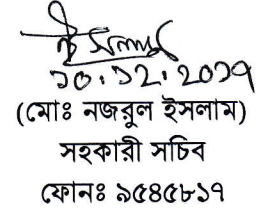 ১০.১২.২০১৭
(মোঃ নজরুল ইসলাম)
সহকারী সচিব
ফোনঃ ৯৫৪৫৮১৭